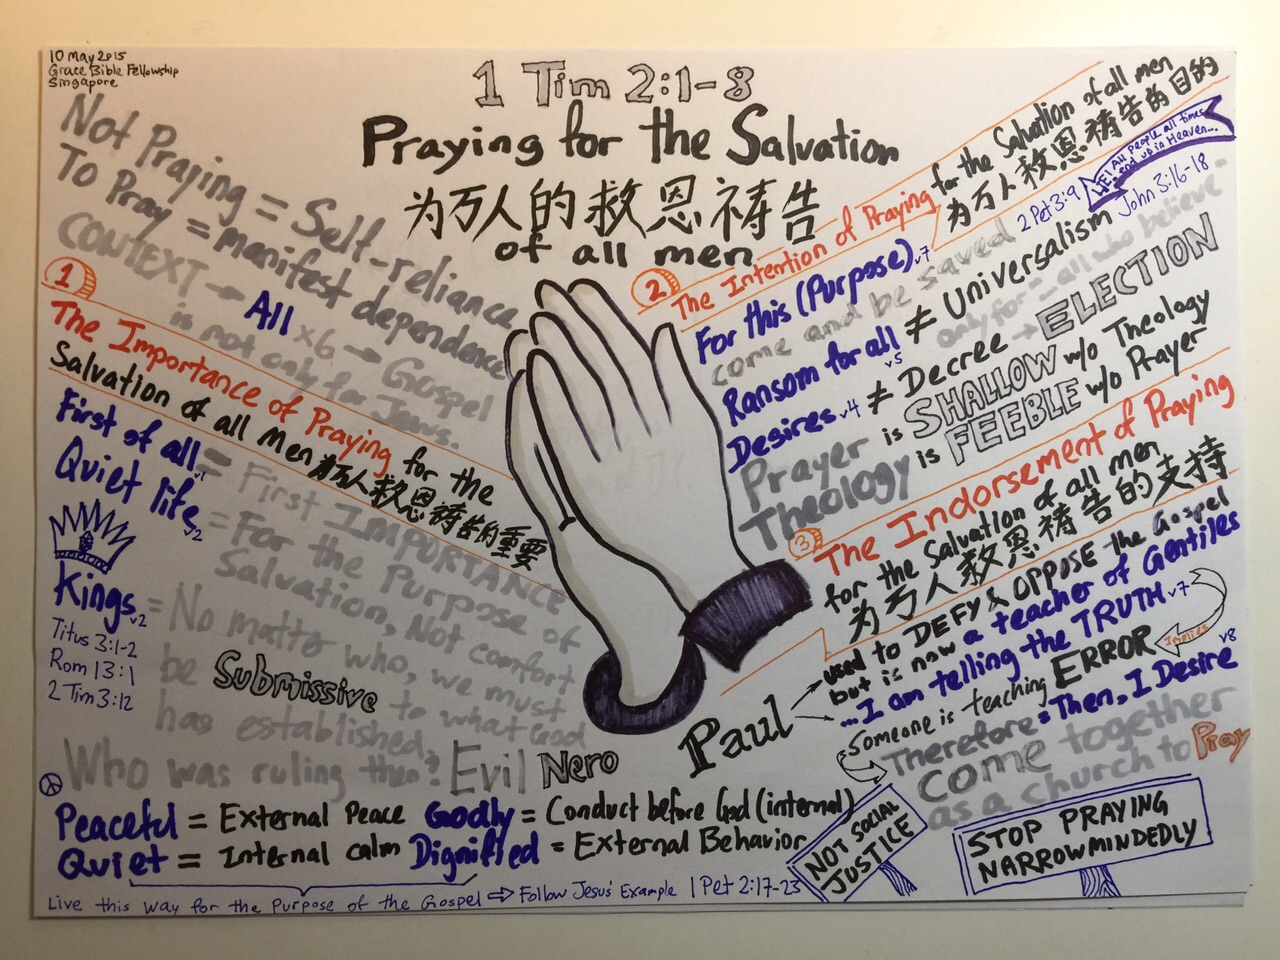 10 May 2015
Grace Bible Fellowship
Singapore
1 Tim 2:1-8
Praying for the Salvation
为万人的救恩祷告
of all men
Not Praying = Self-reliance
To Pray = manifest dependence
CONTEXT → All x6 → Gospel
is not only for Jews.
1
The Importance of Praying for the
Salvation of all Men 为万人救恩祷告的重要
First of all v1 = First IMPORTANCE
Quiet life v2 = For the Purpose of
Salvation, Not comfort
Kings v2 = No matter who, we must
be Submissive to what God
has established.
Titus 3:1-2
Rom 13:1
2 Tim 3:12
Who was ruling then? Evil Nero
Peaceful = External Peace Godly = Conduct before God (internal)
Quiet = Internal calm Dignified = External Behavior
Live this way for the Purpose of the Gospel ⇨ Follow Jesus' Example 1 Pet 2:17-23
2
The Intention of Praying for the Salvation of all men
为万人救恩祷告的目的
For this (Purpose) v7
come and be saved 2 Pet 3:9
All people all times
end up in Heaven...
John 3:16-18
Ransom for all v5 ≠ Universalism
only for ... all who believe
Desires v4 ≠ Decree → ELECTION
Prayer is SHALLOW w/o Theology
Theology is FEEBLE w/o Prayer
3
The Indorsement of Praying
for the Salvation of all men
为万人救恩祷告的支持
Paul → used to DEFY & OPPOSE the Gospel
but is now a teacher of Gentiles
→ ...I am telling the TRUTH v7
Someone is teaching ERROR Implies
Therefore = Then, I Desire v8
come together
as a church to Pray
NOT SOCIAL
JUSTICE
STOP PRAYING
NARROWMINDEDLY